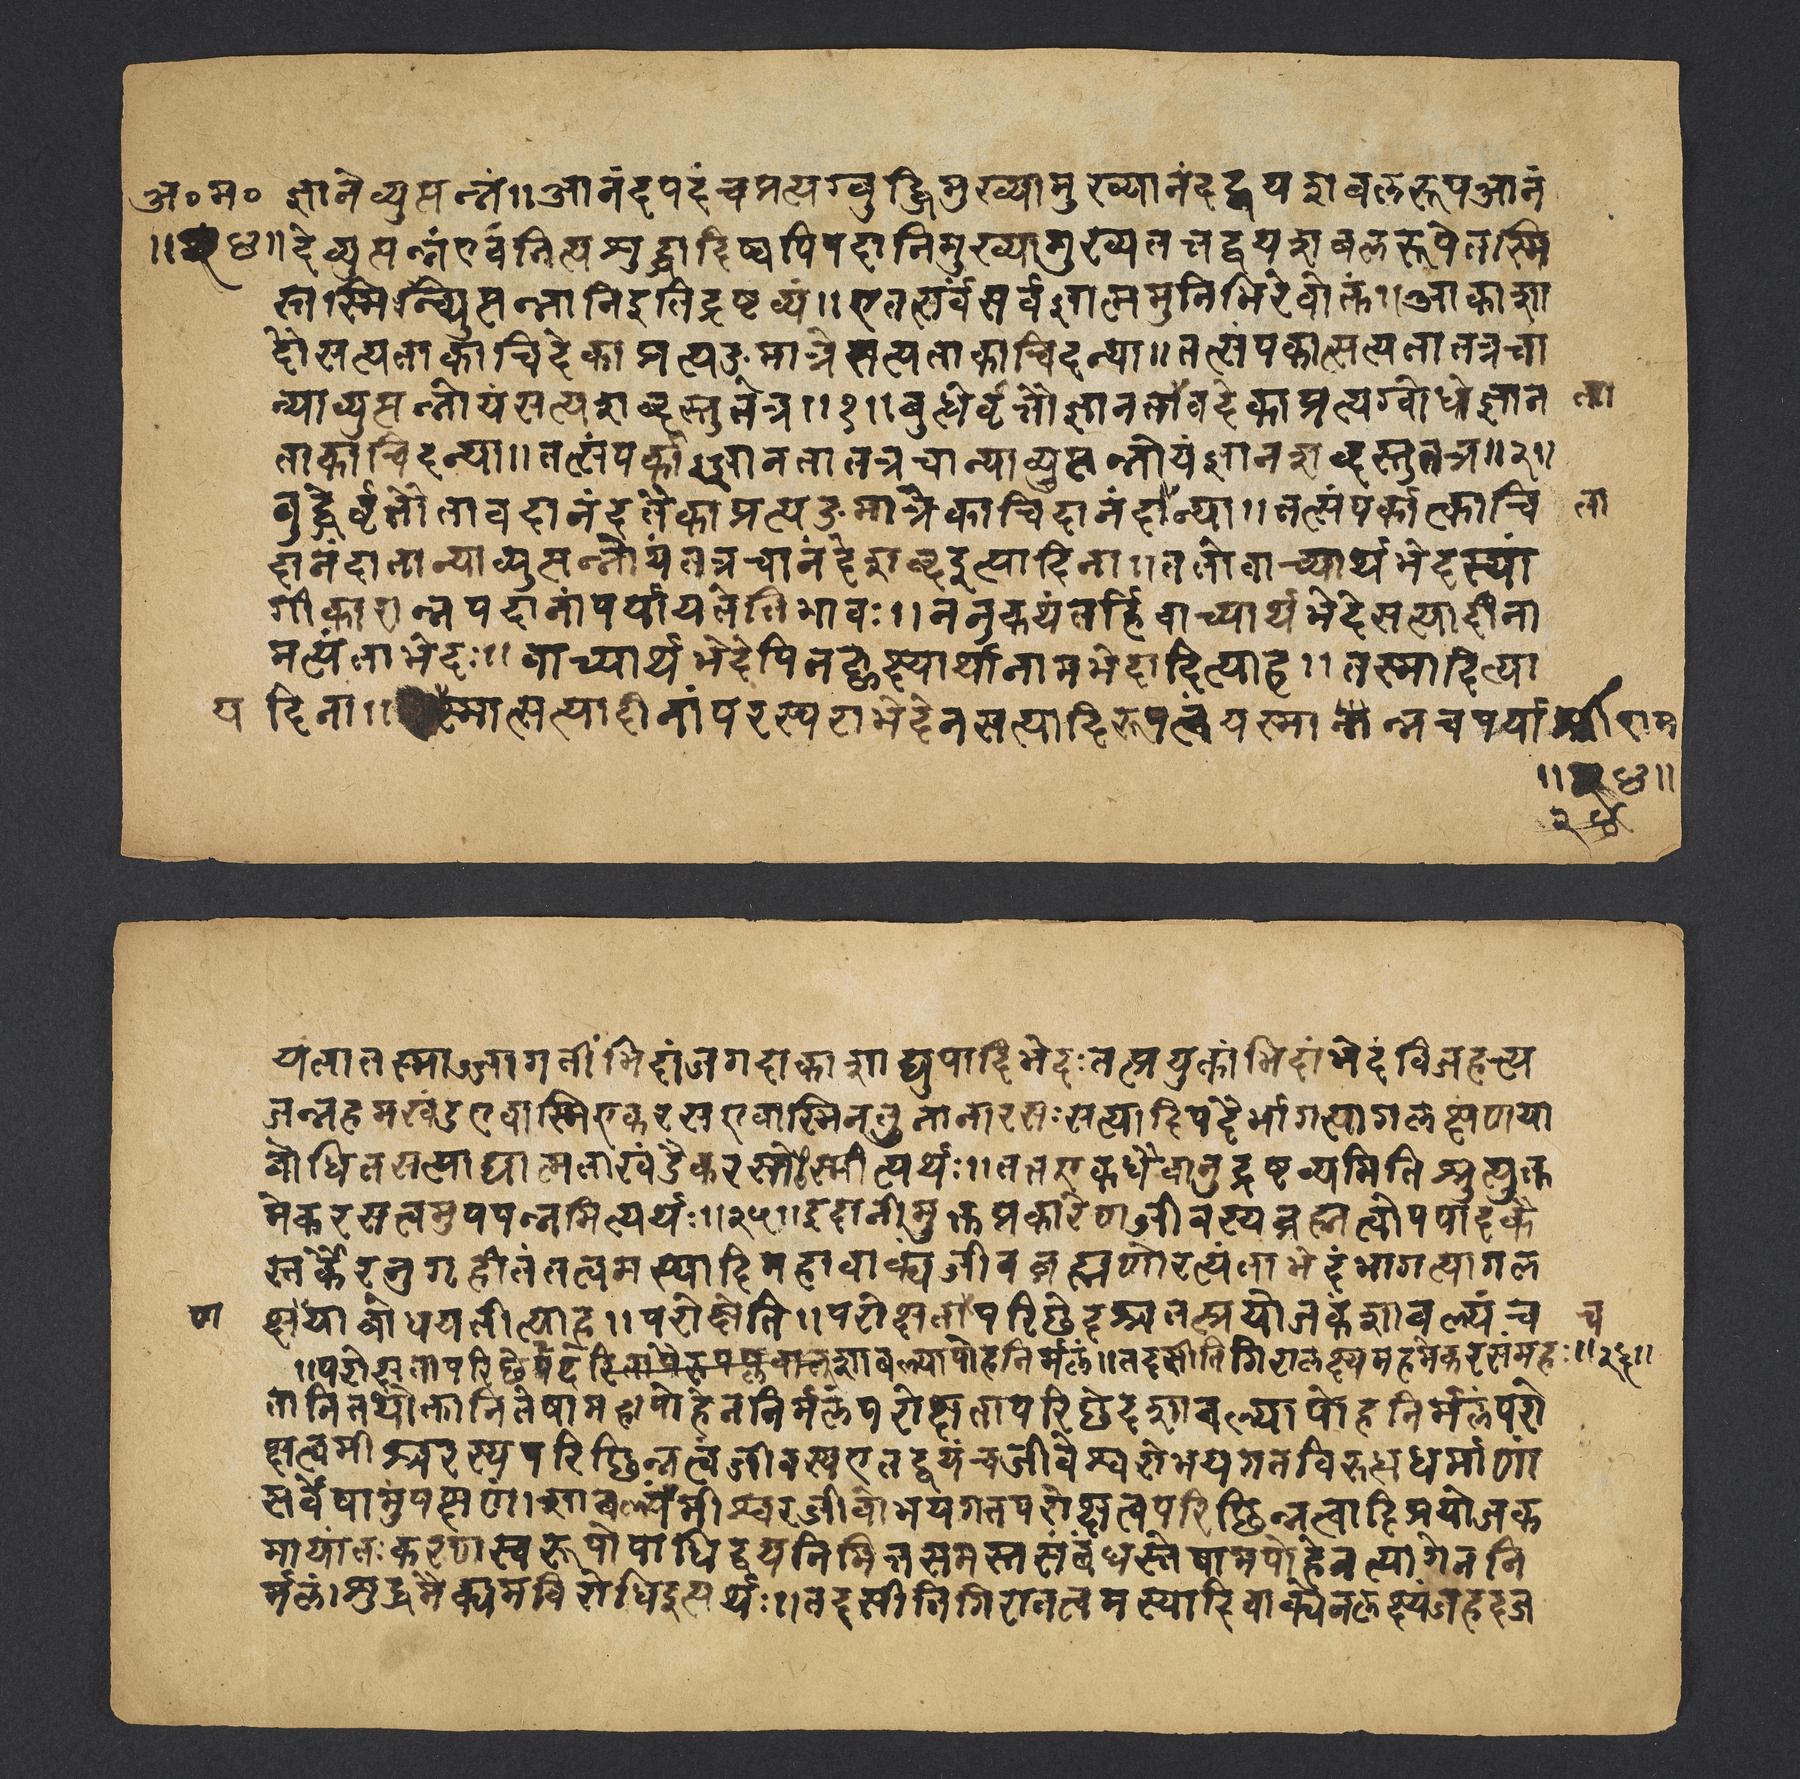 अ॰म॰ ज्ञाने व्युत्पन्नं ॥ आनंदपदं च प्रत्यग्बुद्धिमुख्यामुख्यानंदद्वयशबलरूप आनं
॥२४॥ दे व्युत्पन्नं एवं नित्यशुद्धादिष्वपि पदानि मुख्यामुख्यतत्तद्वयशबलरूपे तस्मि
स्तस्मिन्व्युत्पन्नानि इति द्रष्टव्यं ॥ एतत्सर्वं सर्वज्ञात्ममुनिभिरेवोक्तं ॥ आकाशा
दौ सत्यता काचिदेका प्रत्यङ्मात्रे सत्यता काचिदन्या ॥ तत्संपर्कात्सत्यता तत्र चा
न्या व्युत्पन्नोयं सत्यशब्दस्तु तत्र ॥१॥ बुधेर्वृत्तौ ज्ञानता वदेका प्रत्यग्बोधो ज्ञान ता
ता काचिदन्या ॥ तत्संपर्का ज्ञानता तत्र चान्या व्युत्पन्नोयं ज्ञानशब्दस्तु तत्र ॥२॥
बुद्धेर्वृत्तौ तावदानंदतैका प्रत्यङ्मात्रे काचिदानंदान्या ॥ तत्संपर्कात्काचि ता
दानंदातान्या व्युत्पन्नोयं तत्र चानंदेशब्द इत्यादिना ॥ ततो वाच्यार्थभेदस्यां
गीकारान्न पदानां पर्यायतेति भावः ॥ ननु कथं तर्हि वाच्यार्थभेदे सत्यादीना
मत्यंताभेदः ॥ वाच्यार्थभेदेपि तल्लक्ष्यार्थानामभेदादित्याह ॥ तस्मादित्या
य दिना ॥ स्मात्सत्यादीनां परस्पराभेदेन सत्यादिरूपत्वं यस्मा न्न च पर्या राम
॥२४॥
२४
यता तस्माज्जागतीं भिदां जगदाकाशाद्युपादिभेदः तत्प्रयुक्तां भिदां भेदं विजहत्त्य
जन्नहमखंड एवास्मि एकरस एवास्मि न तु नानारसः सत्यादिपदैर्भागत्यागलक्षणया
बोधितसत्याद्यात्मतारखंडैकरसोस्मीत्यर्थः ॥ तत एकधैवानुद्रष्टव्यमिति श्रुत्युक्त
मेकरसत्वमुपपन्नमित्यर्थः ॥२५॥ इदानीमुक्तप्रकारेण जीवस्य ब्रह्मत्वोपपादकै
स्तर्कैरनुगृहीतं तत्वमस्यादिमहावाक्यं जीवब्रह्मणोरत्यंताभेदं भागत्यागल
ण क्षया बोधयतीत्याह ॥ परोक्षेति ॥ परोक्षतापरिछेदश्च तत्प्रयोजकं शाबल्यं च च
॥परोक्षतापरिछे शाबल्यापोहनिर्मलं ॥ तदसीति गिरा लक्ष्यमहमेकरसं महः ॥२६॥
तानि तथोक्तानि तेषामहापोहेन निर्मलं परोक्षतापरिछेदशाबल्यापोहनिर्मलं परो
क्षत्वमीश्वरस्य परिछिन्नत्वं जीवस्य एतद्द्वयं च जीवेश्वरोभयगतविरुद्धधर्माणां
सर्वेषामुपक्षणं । शाबल्यमीश्वरजीवोभयगतपरोक्षत्वपरिछिन्नत्वादिप्रयोजक
मायांतःकरणस्वरूपोपाधिद्वयनिमित्तसमस्तसंबंधस्तेषामपोहेन त्यागेन नि
र्मलं । शुद्धमैक्यमविरोधि इत्यर्थः ॥ तदसीति गिरा तत्वमस्यादिवाक्येन लक्ष्यं जहदज